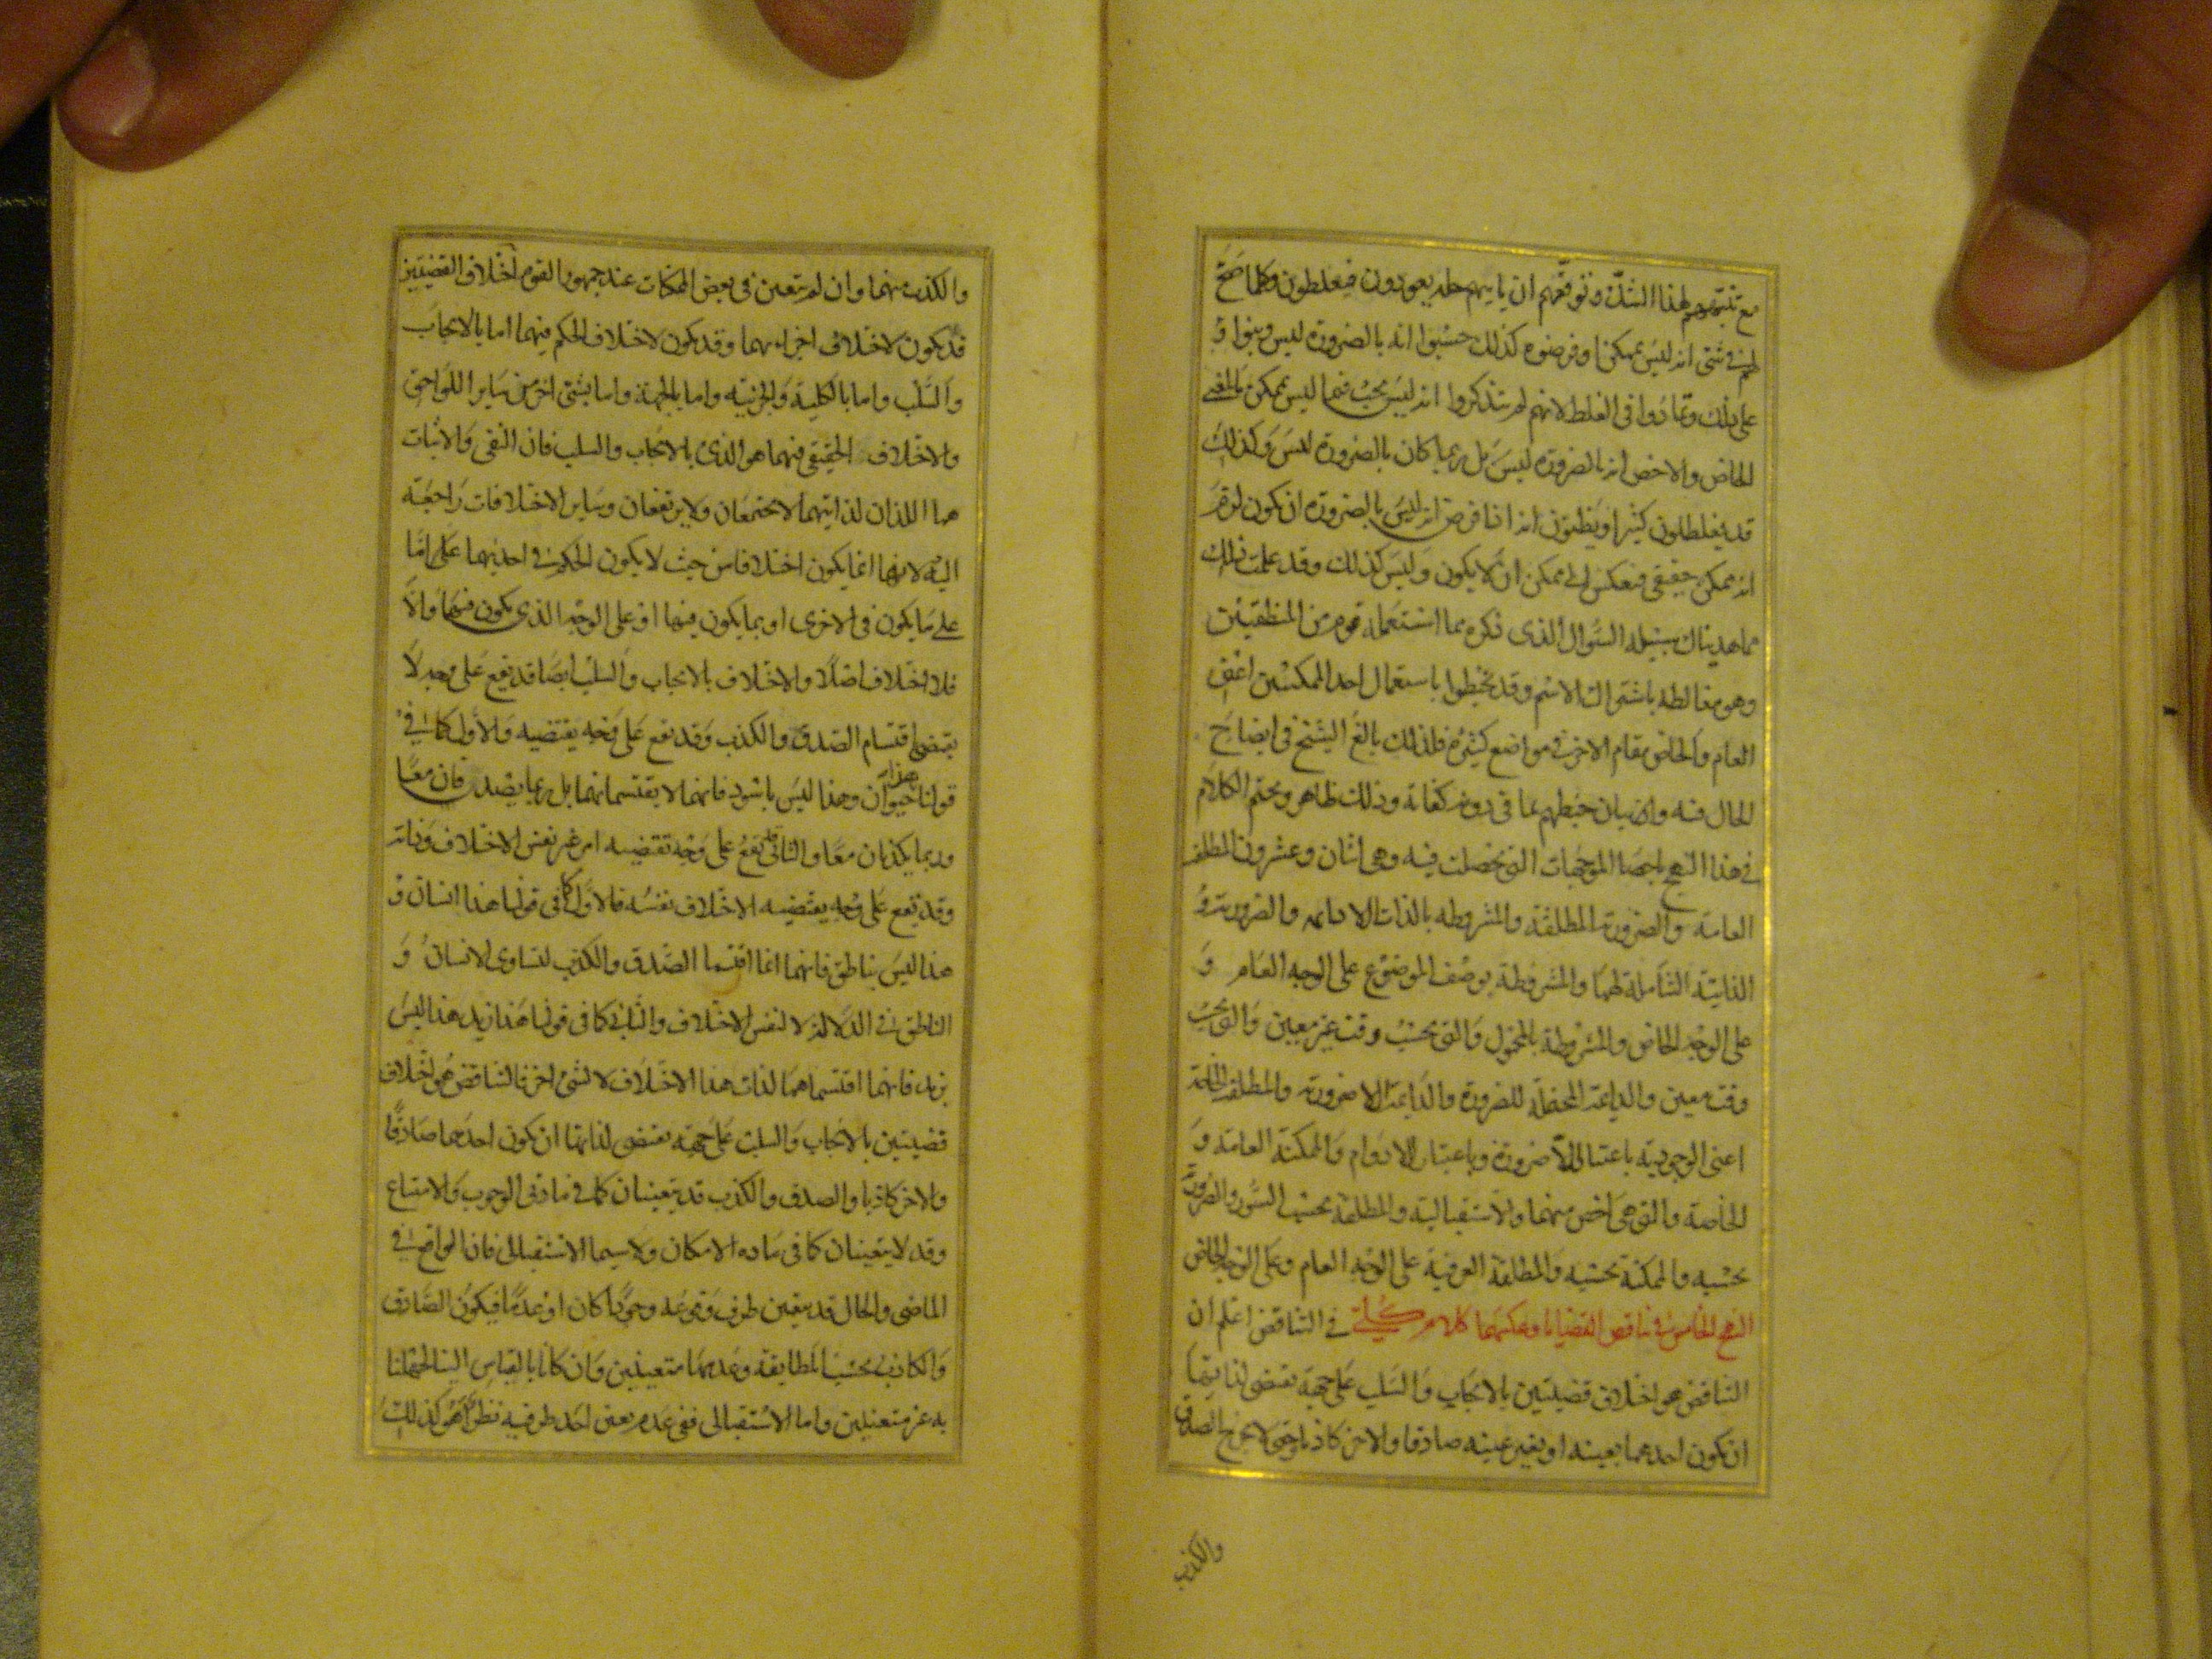 مع تنبههم لهذا الشك وتوقعهم ان ياتيهم حله يعودون فيغلطون وكلما صح
لهم فى شئ انه ليس بممكن او فرضوه كذلك حسبوا انه بالضرورة ليس وبنوا
على ذلك وتمادوا فى الغلط لانهم لم يتذكروا انه ليس يجب فيما ليس بممكن بالمعنى
الخاص والاخص انه بالضرورة ليس بل ربما كان بالضرورة ليس وكذلك
قد يغلطون كثيرا ويظنون انه اذا فرض انه ليس بالضرورة ان يكون لزم
انه ممكن حقيقى فينعكس الى ممكن ان لا يكون وليس كذلك وقد علمت ذلك
مما هديناك سبيله السؤال الذى ذكره مما استعمله قوم من المنطقيين
وهو مغالطه باشتراك الاسم وقد تخبطوا باستعمال احد الممكنين اعنى
العام والخاص مقام الاخر فى مواضع كثيرة فلذلك بالغ الشيخ فى ايضاح
الحال فيه وبيان خبطهم بما فى دونه كفاية وذلك ظاهر ونختم الكلام
فى هذا النهج باحصا الموجهات التى تحصلت فيه وهى اثنان وعشرون المطلقة
العامة والضرورة المطلقة والمشروطه بالذات الادائمه والضرورية
الذاتية الشاملة لهما والمشروطة بوصف الموضوع على الوجه العام و
على الوجه الخاص والمشروطة بالمحمول والتى بحسب وقت غير معين والتى بحسب
وقت معين والدايمة المحتملة للضرورة والدايمة اللاضرورية والمطلقة الخاصة
اعنى الوجودية باعتبار اللاضرورة وباعتبار اللادوام والممكنة العامة و
الخاصة والتى هى اخص منهما والاستقبالية والمطلقة بحسب السور والضرورية
بحسبه والممكنة بحسبه والمطلقة العرفية على الوجه العام وعلى الوجه الخاص
النهج الخامس فى تناقض القضايا وعكسها كلام كلى فى التناقض اعلم ان
التناقض هو اختلاف قضيتين بالايجاب والسلب على جهة يقتضى لذاتها
ان يكون احدهما بعينه او بغير عينه صادقا والاخر كاذبا حتى لا يخرج الصدق
والكذب
والكذب منهما وان لم يتعين فى بعض الممكنات عند جمهور القوم اختلاف القضيتين
قد يكون لاختلاف اجزاءهما وقد يكون لاختلاف الحكم فيهما اما بالايجاب
والسلب واما بالكلية والجزئية واما بالجهة واما بشئ اخر من ساير اللواحق
والاختلاف الحقيقى فيهما هو الذى بالايجاب والسلب فان النفى والاثبات
هما اللذان لذاتيهما لا يجتمعان ولا يرتفعان وساير الاختلافات راجعة
اليه لانها انما يكون اختلافا من حيث لا يكون الحكم فى احديهما على ما
على ما يكون فى الاخرى او بما يكون فيها او على الوجه الذى يكون فيها والا
فلا اختلاف اصلا والاختلاف بالايجاب والسلب ايضا قد يقع على وجه لا
يقتضى اقتسام الصدق والكذب وقد يقع على وجه يقتضيه والاول كما فى
قولنا هذا حيوان وهذا ليس باسود فانهما لا يقتسمانهما بل ربما يصدقان معا
وربما يكذبان معا والثانى قد يقع على وجه تقتضيه امر غير نفس الاختلاف وذاته
وقد تقع على وجه يقتضيه الاختلاف نفسه فالاول كما فى قولنا هذا انسان و
هذا ليس بناطق فانهما انما اقتسما الصدق والكذب لتساوى الانسان و
الناطق فى الدلالة لا لنفس الاختلاف والثانى كما فى قولنا هذا زيد هذا ليس
بزيد فانهما اقتسماهما لذات هذا الاختلاف لا لشئ اخر فالتناقض هو اختلاف
قضيتين بالايجاب والسلب على جهة يقتضى لذاتها ان يكون احدهما صادقا
والاخر كاذبا والصدق والكذب قد يتعينان كما فى مادتى الوجوب والامتناع
وقد لا يتعينان كما فى مادة الامكان ولا سيما الاستقبالى فان الواقع فى
الماضى والحال قد يتعين طرف وقوعه وجودا كان او عدما فيكون الصادق
والكاذب بحسب المطابقة وعدمها متعينين وان كانا بالقياس الينا لجهلنا
به غير متعينين واما الاستقبالى ففى عدم تعين احد طرفيه نظر اهو كذلك